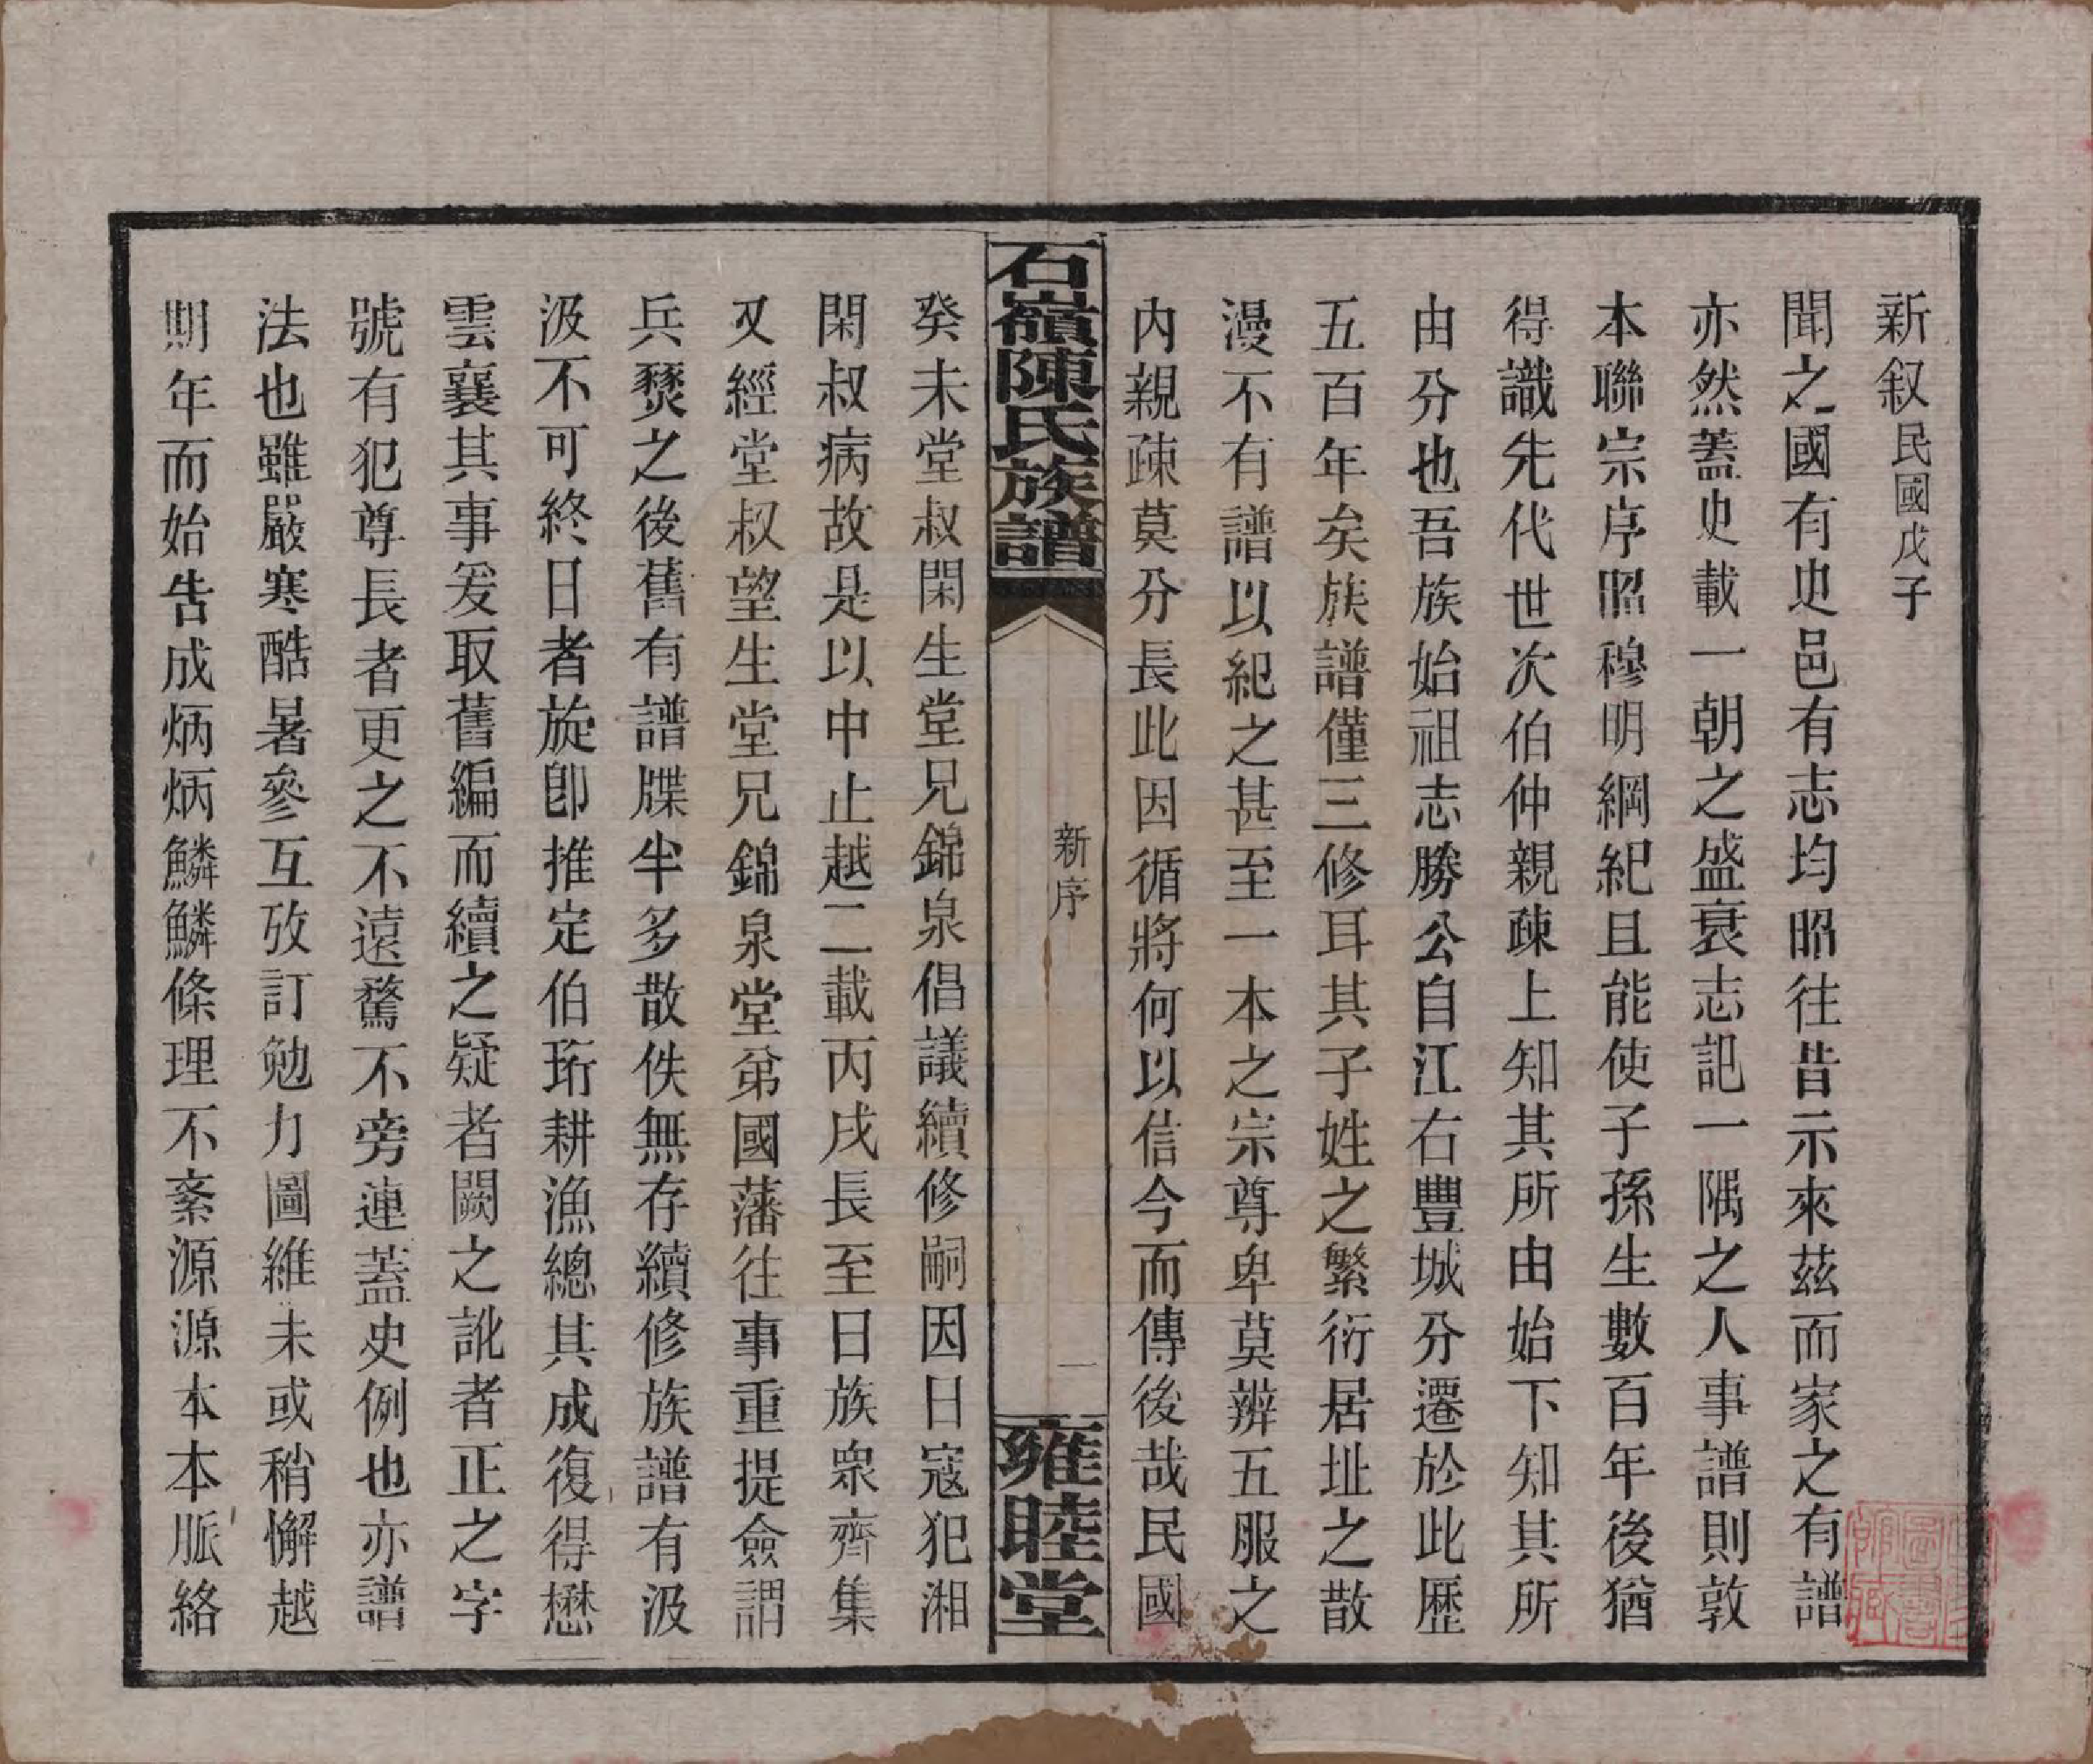 新叙民國戊子
聞之國有史邑有志均昭往昔示來茲而家之有譜
亦然蓋史載一朝之盛衰志記一隅之人事譜則敦
本聯宗序昭穆明綱紀且能使子孫生數百年後猶
得識先代世次伯仲親疎上知其所由始下知其所
由分也吾族始祖志勝公自江右豐城分遷於此歷
五百年矣族譜僅三修耳其子姓之繁衍居址之散
漫不有譜以紀之甚至一本之宗尊卑莫辨五服之
內親疎莫分長此因循將何以信今而傳後哉民國
石嶺陳氏族譜
新序
一
雍睦堂
癸未堂叔閑生堂兄錦泉倡議續修嗣因日寇犯湘
閑叔病故是以中止越二載丙戌長至日族眾齊集
又經堂叔望生堂兄錦泉堂弟國藩往事重提僉謂
兵燹之後舊有譜牒半多散佚無存續修族譜有汲
汲不可終日者旋卽推定伯珩耕漁總其成復得懋
雲襄其事爰取舊編而續之疑者闕之訛者正之字
號有犯尊長者更之不遠騖不旁連蓋史例也亦譜
法也雖嚴寒酷暑參互攷訂勉力圖維未或稍懈越
期年而始告成炳炳鱗鱗條理不紊源源本本脈絡